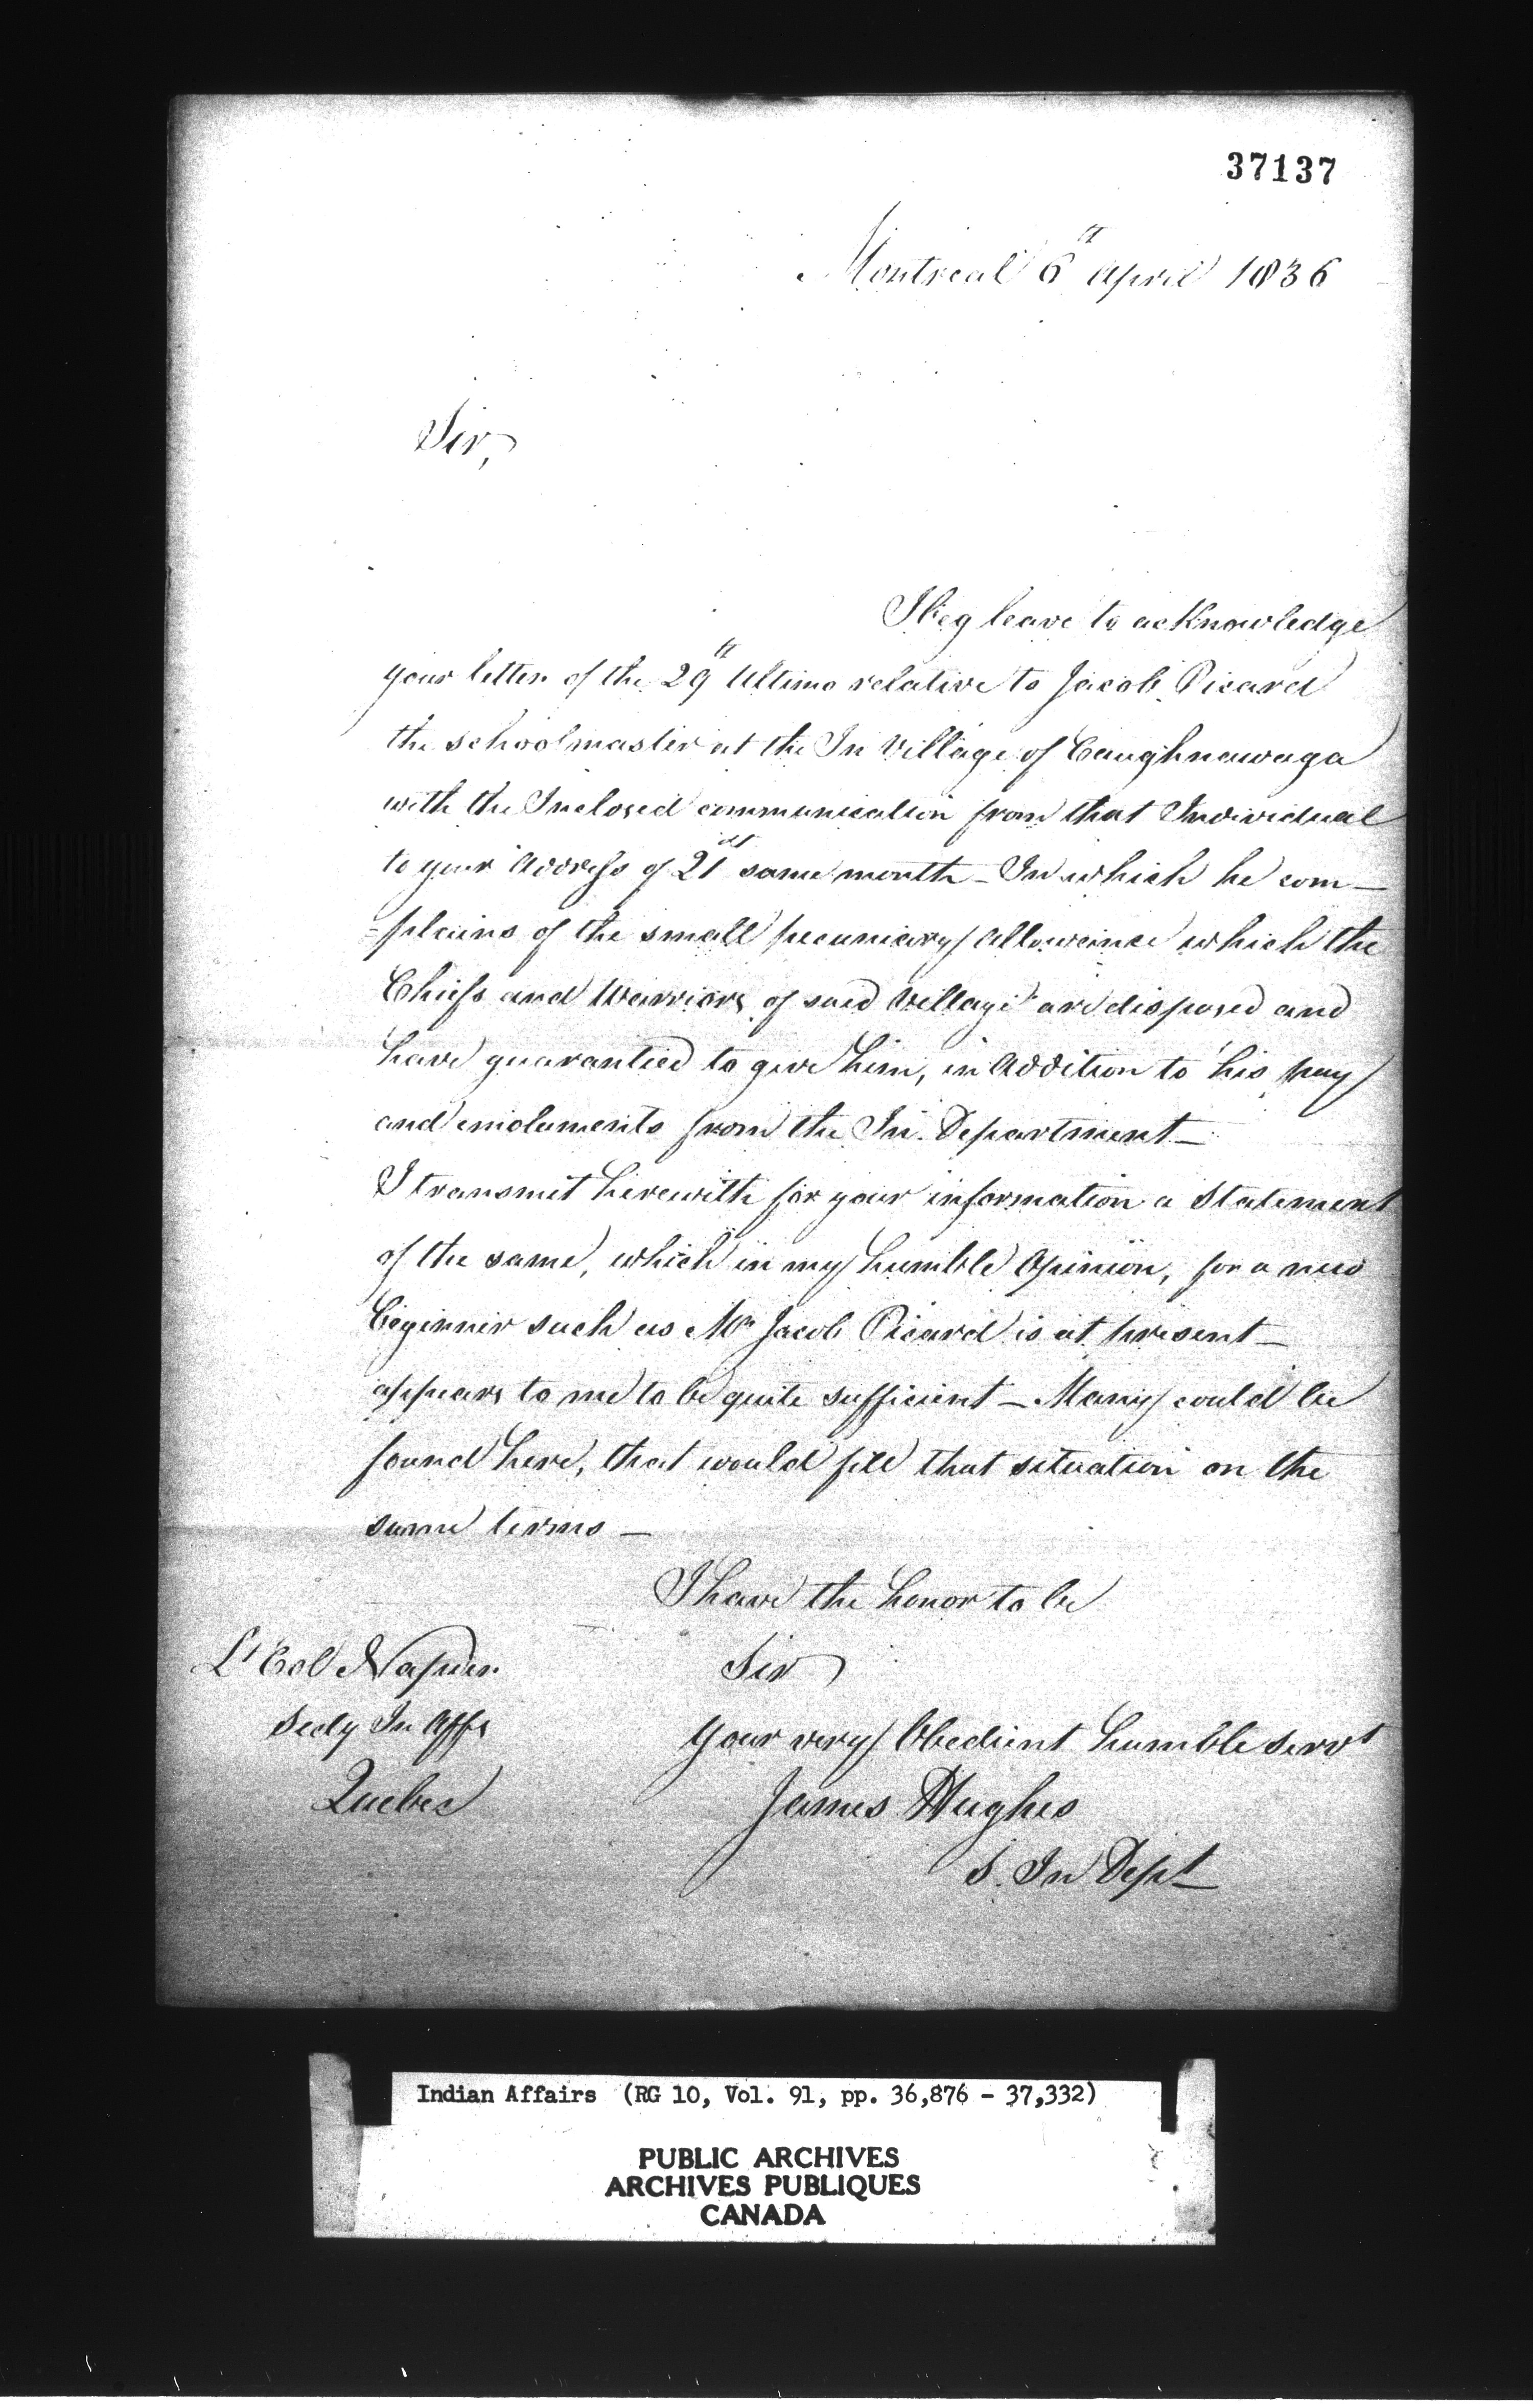 37137
Montreal 6th April 1836
Sir,
I beg leave to acknowledge
your letter of the 29th Ultimo relative to Jacob Picard
the schoolmaster at the In Village of Caughnawaga
with the Inclosed communication from that Individual
to your Address of 21st same month – In which he com–
=plains of the small pecuniary Allowance which the
Chiefs and Warriors of said Village are disposed and
have guarantied to give him, in Addition to his pay
and emoluments from the In. Department –
I transmit herewith for your information a Statement
of the same, which in my humble Opinion, for a new
beginner such as Mr Jacob Picard is at present –
appears to me to be quite sufficient – Many could be
found here, that would fill that situation on the
same terms –
I have the honor to be
Sir
Your very Obedient humble servt
James Hughes
S. In Dept
Lt Col Napier
Secy In Affs
Quebec
Indian Affairs (RG 10, Vol. 91, pp. 36,876 - 37,332)
PUBLIC ARCHIVES
ARCHIVES PUBLIQUES
CANADA